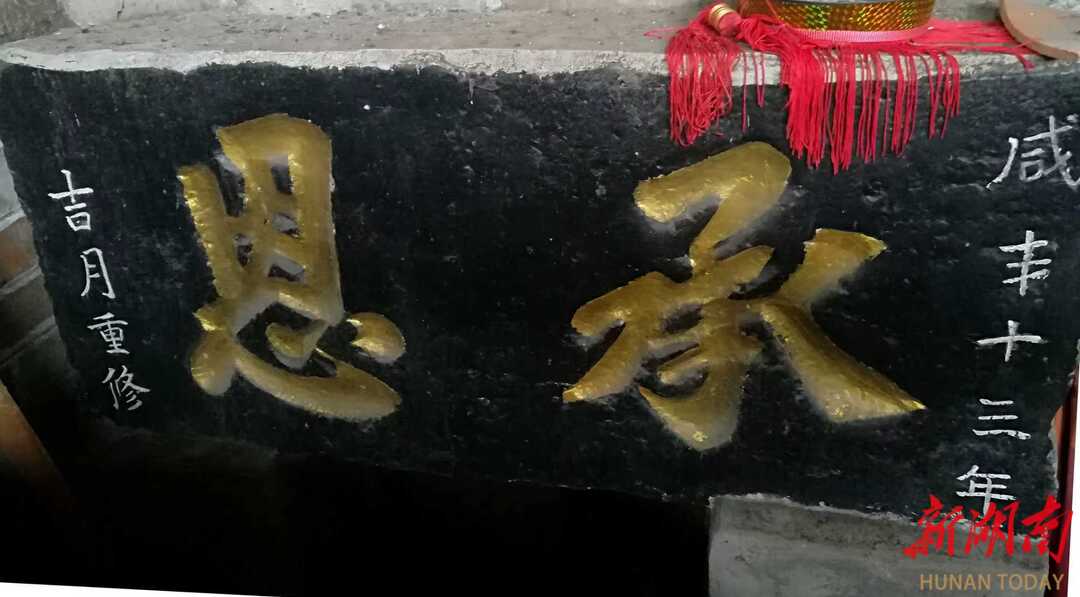 咸丰十三年
承恩
吉月重修
新湖南
HUNAN TODAY